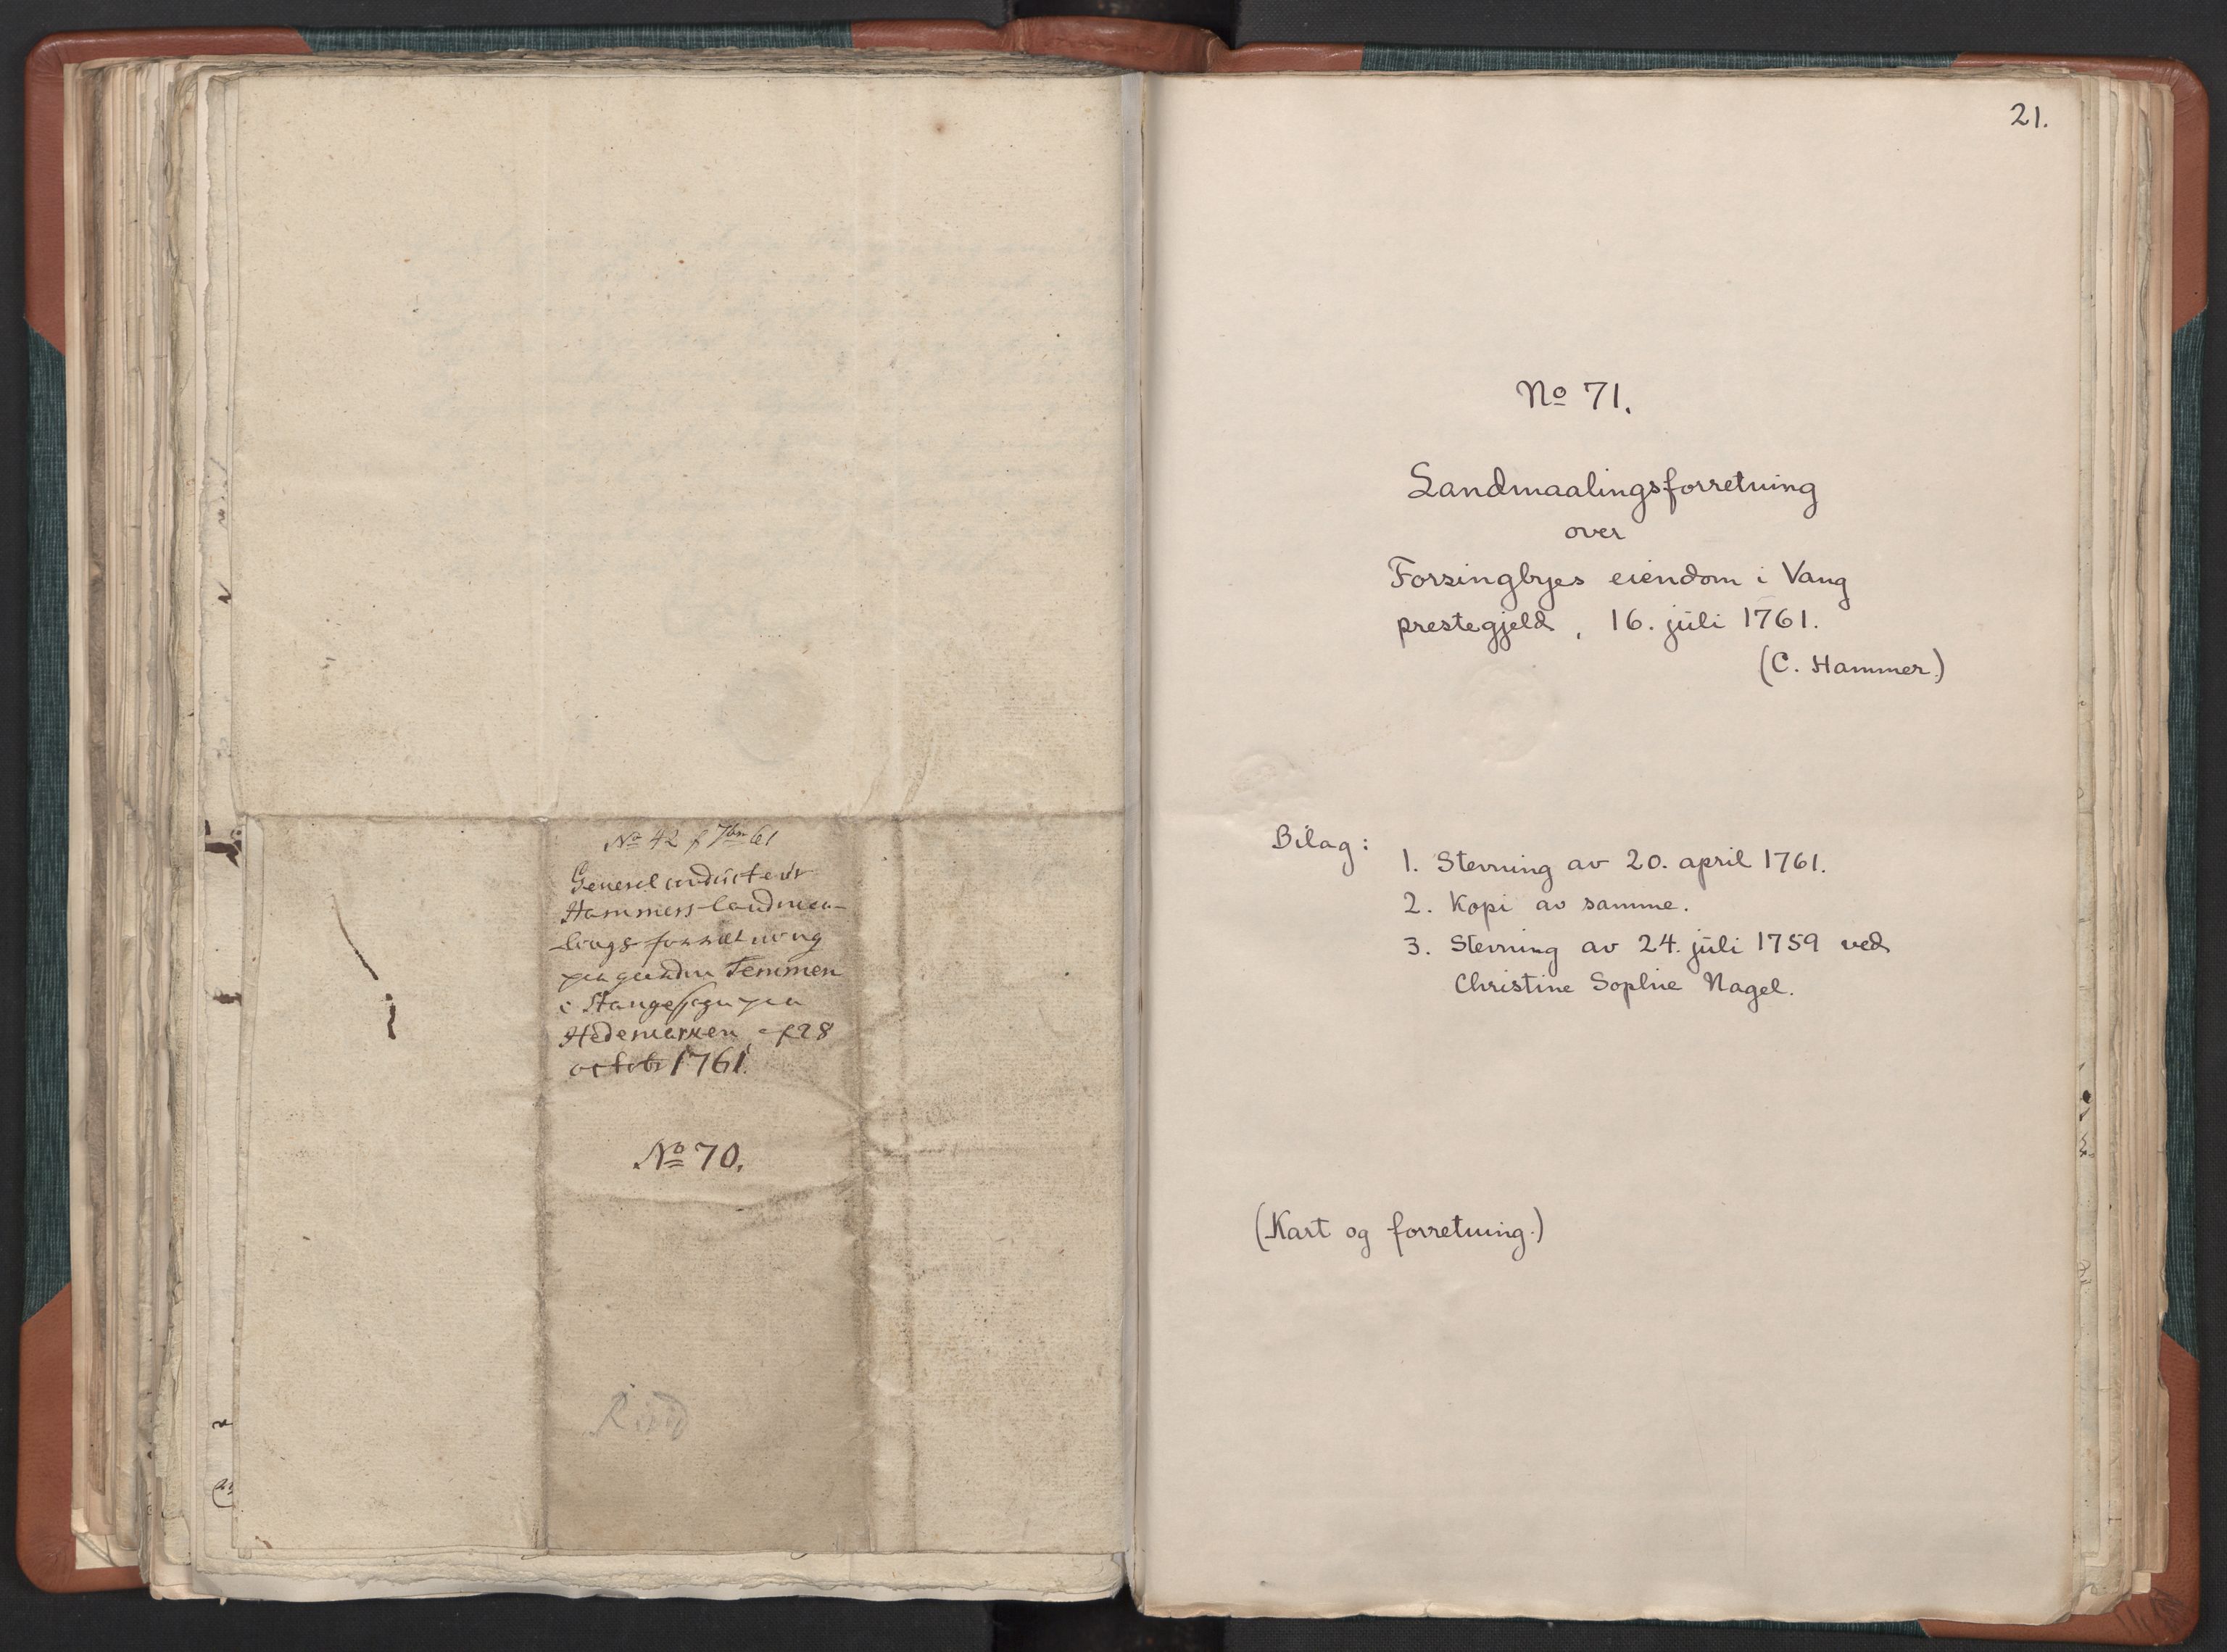 No 42 f 7br 61
General conducteur
Hammers landmaa-
lings forretning
paa gaarden Temmen
i Stange Sogn paa
Hedemarken af 28
octobr 1761.
No 70.
21.
No 71.
Landmaalingsforretning
over
Forsingbyes eiendom i Vang
prestegjeld, 16. juli 1761.
(C. Hammer.)
Bilag:
1. Stevning av 20. april 1761.
2. Kopi av samme.
3. Stevning av 24. juli 1759 ved
Christine Sophie Nagel.
(Kart og forretning.)